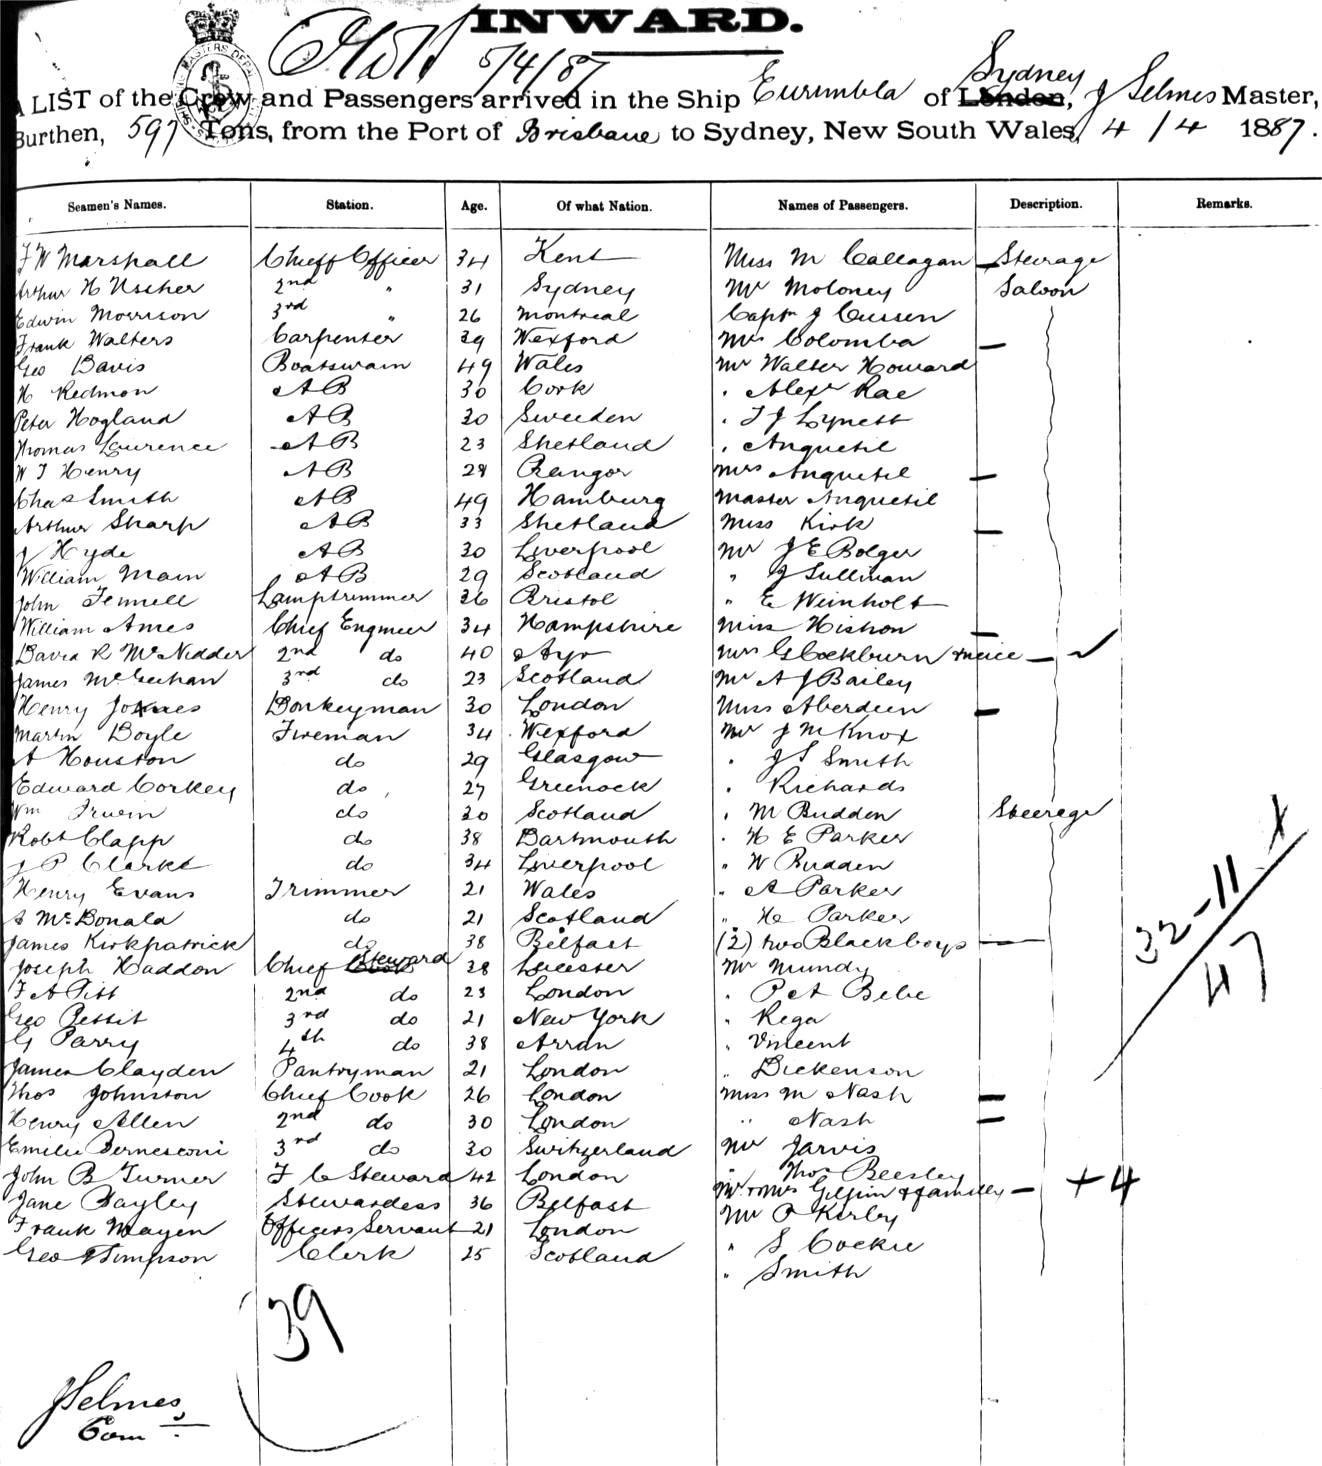 INWARD.
5/4/87
Sydney
A LIST of the Crew and Passengers arrived in the Ship Eurimbla of London, J Selmes Master,
Burthen, 597 Tons, from the Port of Brisbane to Sydney, New South Wales, 4 / 4 1887.
Seamen's Names. Station. Age. Of what Nation. Names of Passengers. Description. Remarks.
F W Marshall Chieff Officer 34 Kent Miss M Callagan — Steerage
Arthur H Uscher 2nd " 31 Sydney Mr Moloney Saloon
Edwin Morrison 3rd " 26 Montreal Captn J Cussen
Frank Walters Carpenter 39 Wexford Mrs Colomba —
Geo Davis Boatswain 49 Wales Mr Walter Howard
H Redmon AB 30 Cork " Alexr Rae
Peter Hogland AB 30 Sweeden " T J Lynett
Thomas Laurence AB 23 Shetland " Anquetil
W T Henry AB 28 Bangor Mrs Anquetil —
Chas Smith AB 49 Hamburg Master Anquetil
Arthur Sharp AB 33 Shetland Miss Kirk —
J Hyde AB 30 Liverpool Mr J E Bolger
William Main AB 29 Scotland " J Sullivan
John Fennell Lamptrimmer 36 Bristol " E Weinholt
William Ames Chief Engineer 34 Hampshire Miss Hishon —
David R McNidder 2nd do 40 Ayr Mrs G Cockburn & niece — ✓
James McGeehan 3rd do 23 Scotland Mr A J Bailey
Henry Jones Donkeyman 30 London Miss Aberdeen —
Martin Boyle Fireman 34 Wexford Mr J McKnox
A Houston do 29 Glasgow " J S Smith
Edward Corkey do 27 Greenock " Richards
Wm Irwin do 30 Scotland " M Budden Steerage
Robt Clapp do 38 Dartmouth " H E Parker
J P Clarke do 34 Liverpool " W Budden
Henry Evans Trimmer 21 Wales " A Parker
A McDonald do 21 Scotland " He Parker
James Kirkpatrick do 38 Belfast (2) two Blackboys —
Joseph Haddon Chief Cook Steward 28 Leicester Mr Mundy
F A Pitt 2nd do 23 London " P A Bebe
Geo Pettit 3rd do 21 New York " Rega
G Parry 4th do 38 Arran " Vincent
James Clayden Pantryman 21 London " Dickenson
Thos Johnston Chief Cook 26 London Miss M Nash —
Henry Allen 2nd do 30 London " Nash —
Emilie Bernesconi 3rd do 30 Switzerland Mr Jarvis
John B Turner F C Steward 42 London " Thos Beesley
Jane Bayley Stewardess 36 Belfast Mr & Mrs Gilpin & family — + 4
Frank Mayen Officers Servant 21 London Mr P Kerby
Geo Simpson Clerk 25 Scotland " S Cockie
" Smith
32-11 X
47
39
J Selmes
Com